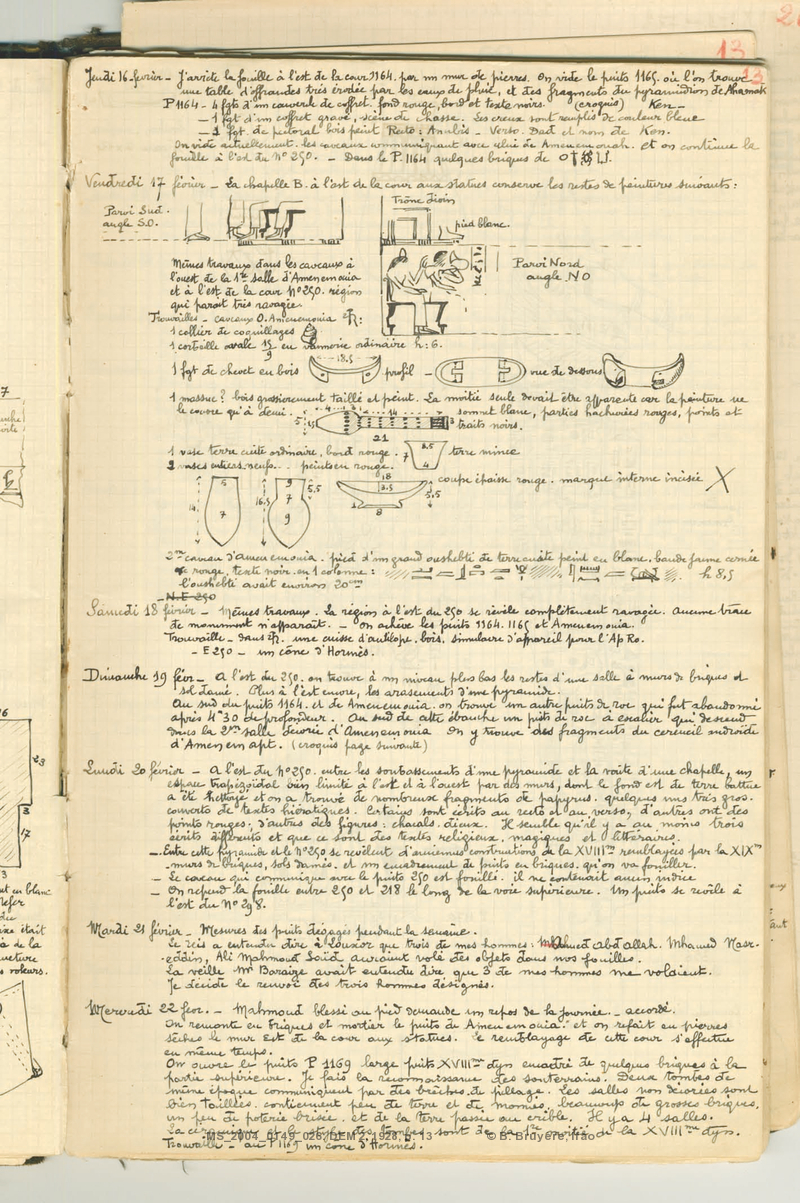 13
Jeudi 16 février - J'arrête la fouille à l'est de la cour 1164. par un mur de pierres. On vide le puits 1165. où l'on trouve
une table d'offrandes très érodée par les eaux de pluie, et des fragments du pyramidion de
P 1164 - 4 fgts d'un couvercle de coffret. fond rouge, bord et texte noirs. (croquis) Ken -
- 1 fgt d'un coffret gravé, scène de chasse. Les creux sont remplis de couleur bleue
- 1 fgt. de pectoral bois peint Recto : Anubis - Verso. Dad et nom de Ken.
On vide actuellement les caveaux communiquant avec celui de Amenemouia. et on continue la
fouille à l'est du N° 250. - Dans le P. 1164 quelques briques de
Vendredi 17 février - La chapelle B. à l'est de la cour aux statues conserve les restes de peintures suivants :
Paroi Sud.
angle S.O.
Trône
pied blanc.
Paroi Nord
angle N O
Mêmes travaux dans les caveaux à
l'ouest de la 1re salle d'Amenemouia
et à l'est de la cour N° 250. région
qui parait très ravagée.
Trouvailles - caveaux O. Amenemouia
1 collier de coquillages
1 corbeille ovale 15/9 en vannerie ordinaire h : 6.
1 fgt de chevet en bois 18.5 profil - vue de dessous
1 massue ? bois grossièrement taillé et peint. La moitié seule devait être apparente car la peinture ne
le couvre qu'à demi. 4 14 sommet blanc, parties hachurées rouges, points et
traits noirs.
21
1 vase terre cuite ordinaire, bord rouge. 7 8.5 4 terre mince
2 vases entiers neufs . . peints en rouge.
14 5 7 16.5 9 7 9 5,5 18 3.5 8 5,5 coupe épaisse rouge. marque interne incisée X
2me caveau d'Amenemouia. pied d'un grand oushebti de terre cuite peint en blanc. bande jaune cernée
de rouge, texte noir en 1 colonne : h 8,5
l'oushebti avait environ 20cm
- N.E 250
Samedi 18 février - Mêmes travaux. La région à l'est du 250 se révèle complètement ravagée. Aucune trace
de monument n'apparait. - On achève les puits 1164. 1165 et Amenemouia.
Trouvaille - dans une cuisse d'antilope. bois, simulacre d'appareil pour l'Ap Ro.
- E 250 - un cône d'Hormès.
Dimanche 19 févr - A l'est du 250. on trouve à un niveau plus bas les restes d'une salle à murs de briques et
sol damé. Plus à l'est encore, les arasements d'une pyramide.
Au sud du puits 1164. et de Amenemouia. on trouve un autre puits de roc qui fut abandonné
après 4m30 de profondeur. Au sud de cette ébauche un puits de roc à escalier qui descend
dans la 2me salle décorée d'Amenemouia On y trouve des fragments du cercueil androïde
d'Amenemapt. (croquis page suivante)
Lundi 20 février - A l'est du N° 250. entre les soubassements d'une pyramide et la voûte d'une chapelle, un
espace trapézoïdal bien limité à l'est et à l'ouest par des murs, dont le fond est de terre battue
a été nettoyé et on a trouvé de nombreux fragments de papyrus. quelques uns très gros.
couverts de textes hiératiques. Certains sont écrits au recto et au verso, d'autres ont des
points rouges, d'autres des figures : chacals. dieux. Il semble qu'il y a au moins trois
écrits différents et que ce sont des textes religieux, magiques et littéraires.
- Entre cette pyramide et le N° 250 se révèlent d'anciennes constructions de la XVIIIme remblayées par la XIXme
- murs de briques, sols damés. et un encadrement de puits en briques, qu'on va fouiller.
- Le caveau qui communique avec le puits 250 est fouillé. il ne contenait aucun indice
- On reprend la fouille entre 250 et 218 le long de la voie supérieure. Un puits se révèle à
l'est du N° 298.
Mardi 21 février - Mesures des puits dégagés pendant la semaine.
Le reis a entendu dire à Louxor que trois de mes hommes : Mhamed abd allah. Mhamed Nasr-
eddin, Ali Mahmoud Saïd auraient volé des objets dans nos fouilles.
La veille Mr Baraize avait entendu dire que 3 de mes hommes me volaient.
Je décide le renvoi des trois hommes désignés.
Mercredi 22 fevr. - Mahmoud blessé au pied demande un repos de la journée. - accordé.
On remonte en briques et mortier le puits du Amenemouia. et on refait en pierres
sèches le mur Est de la cour aux statues. le remblayage de cette cour s'effectue
en même temps.
On ouvre le puits P 1169 large puits XVIIIme dyn encadré de quelques briques à la
partie supérieure. Je fais la reconnaissance des souterrains. Deux tombes de
même époque communiquent par des brèches de pillage. Les salles non décorées sont
bien taillées. contiennent peu de terre et de momies, beaucoup de grosses briques,
un peu de poterie brisée. et de la terre passée au crible. Il y a 4 salles.
sont de la 1re moitié de la XVIIIme dyn.
Trouvaille - au P 1169 un cône d'Hormès.
MS_2004_0149_026, DEM 2, 1928, p. 13
© B. Bruyère, Ifao